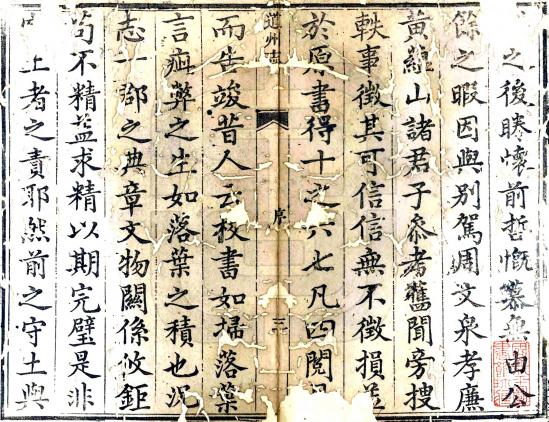 之後勝懷前哲慨慕
由公
餘之暇因與別駕周文泉孝廉
黃縋山諸君子參考舊聞旁搜
軼事徵其可信信無不徵損益
於原書得十之六七凡四閱
而告竣昔人云校書如掃落葉
道州志
序
三
言疵弊之生如落葉之積也況
志一郡之典章文物關係攸鉅
苟不精益求精以期完璧是非
土者之責耶然前之守土與